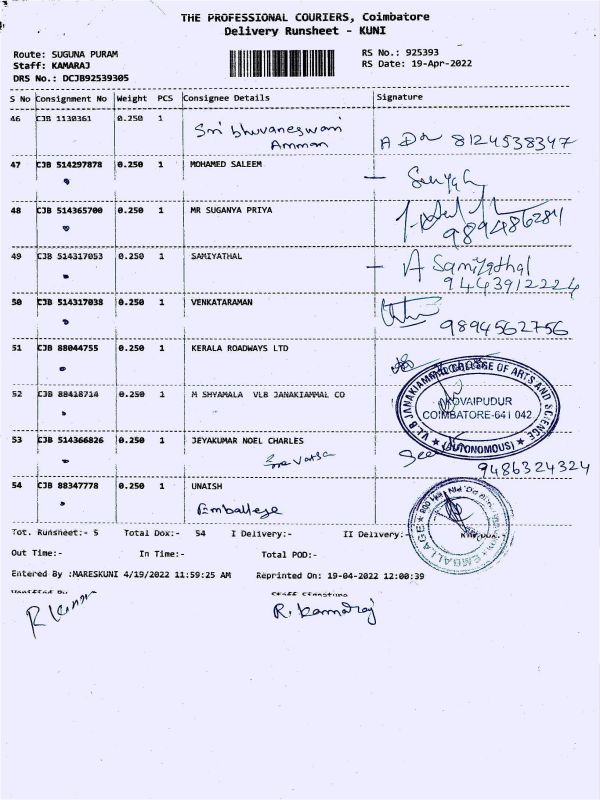 THE PROFESSIONAL COURIERS, Coimbatore
Delivery Runsheet - KUNI
Route: SUGUNA PURAM
Staff: KAMARAJ
DRS No.: DCJB92539305
RS No.: 925393
RS Date: 19-Apr-2022
S No Consignment No Weight PCS Consignee Details Signature
46 CJB 1130361 0.250 1 Sri bhuvaneswari
Amman 8124538347
47 CJB 514297878 0.250 1 MOHAMED SALEEM
48 CJB 514365700 0.250 1 MR SUGANYA PRIYA
9894486284
49 CJB 514317053 0.250 1 SAMIYATHAL A Samiyathal
9443912224
50 CJB 514317038 0.250 1 VENKATARAMAN
9894562756
51 CJB 88044755 0.250 1 KERALA ROADWAYS LTD
52 CJB 88418714 0.250 1 M SHYAMALA VLB JANAKIAMMAL CO
V.L.B JANAKIAMMAL COLLEGE OF ARTS AND SCIENCE
KOVAIPUDUR
COIMBATORE-641 042
(AUTONOMOUS)
53 CJB 514366826 0.250 1 JEYAKUMAR NOEL CHARLES
Sree Vatsa
9486324324
54 CJB 88347778 0.250 1 UNAISH
Emballege
EMBALLAGE
Tot. Runsheet:- 5 Total Dox:- 54 I Delivery:- II Delivery:-
Out Time:- In Time:- Total POD:-
Entered By :MARESKUNI 4/19/2022 11:59:25 AM Reprinted On: 19-04-2022 12:00:39
R. Kamaraj